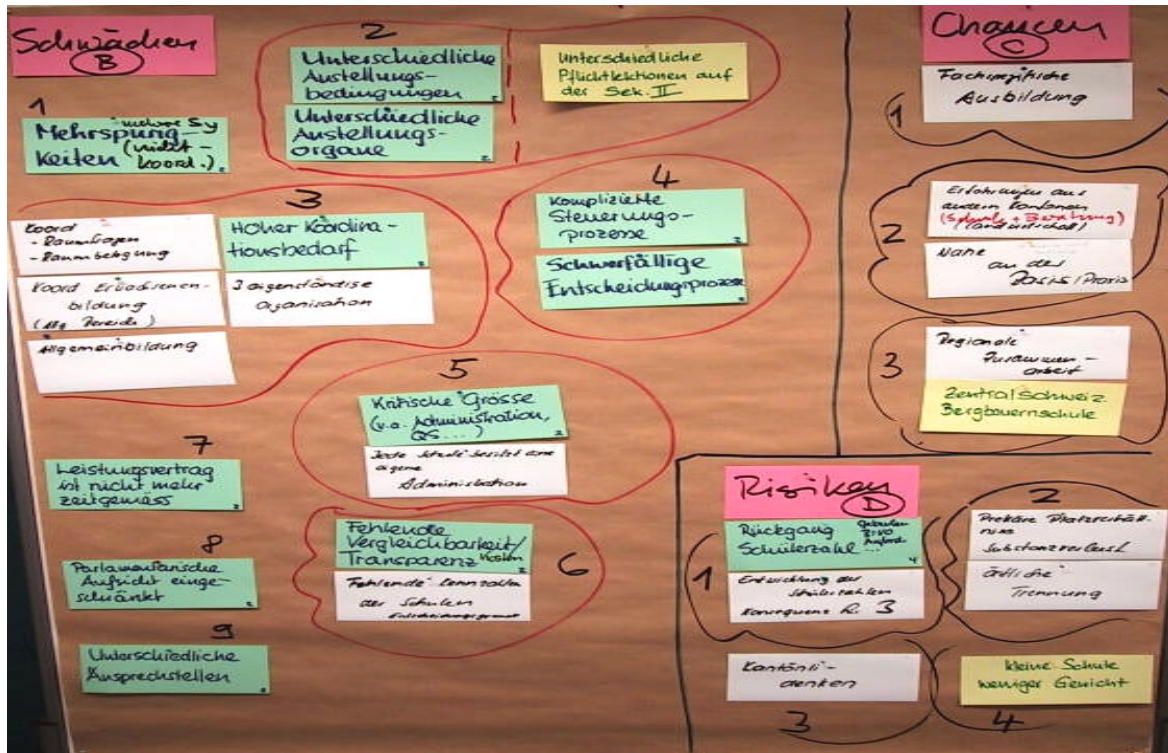 Schwächen
B
1
Mehrspurig-
keiten
mehrere Sy
(nicht-
koord.)
2
Unterschiedliche
Anstellungs-
bedingungen
Unterschiedliche
Anstellungs-
organe
Unterschiedliche
Pflichtlektionen auf
der Sek. II
3
Koord
- Raumfragen
- Raumbelegung
Koord Erwachsenen-
bildung
(Allg Bereich)
Allgemeinbildung
Hoher Koordina-
tionsbedarf
3 eigenständige
Organisation
4
Komplizierte
Steuerungs-
prozesse
Schwerfällige
Entscheidungsprozesse
5
Kritische Grösse
(v.a. Administration,
QS ...)
Jede Schule besitzt eine
eigene
Administration
6
Fehlende
Vergleichbarkeit/
Transparenz Kosten
Fehlende Kennzahlen
der Schulen
7
Leistungsvertrag
ist nicht mehr
zeitgemäss
8
Parlamentarische
Aufsicht einge-
schränkt
9
Unterschiedliche
Ansprechstellen
Chancen
C
1
Fachspezifische
Ausbildung
2
Erfahrungen aus
andern Kantonen
(Schule + Beratung)
(Landwirtschaft)
Nähe
an der
Basis / Praxis
3
Regionale
Zusammen-
arbeit
Zentralschweiz.
Bergbauernschule
Risiken
D
1
Rückgang
Schülerzahl ...
Entwicklung der
Schülerzahlen
Konsequenz
2
Prekäre Platzverhält-
nisse
Substanzverlust
örtliche
Trennung
3
Kantönli-
denken
4
kleine Schule
weniger Gewicht